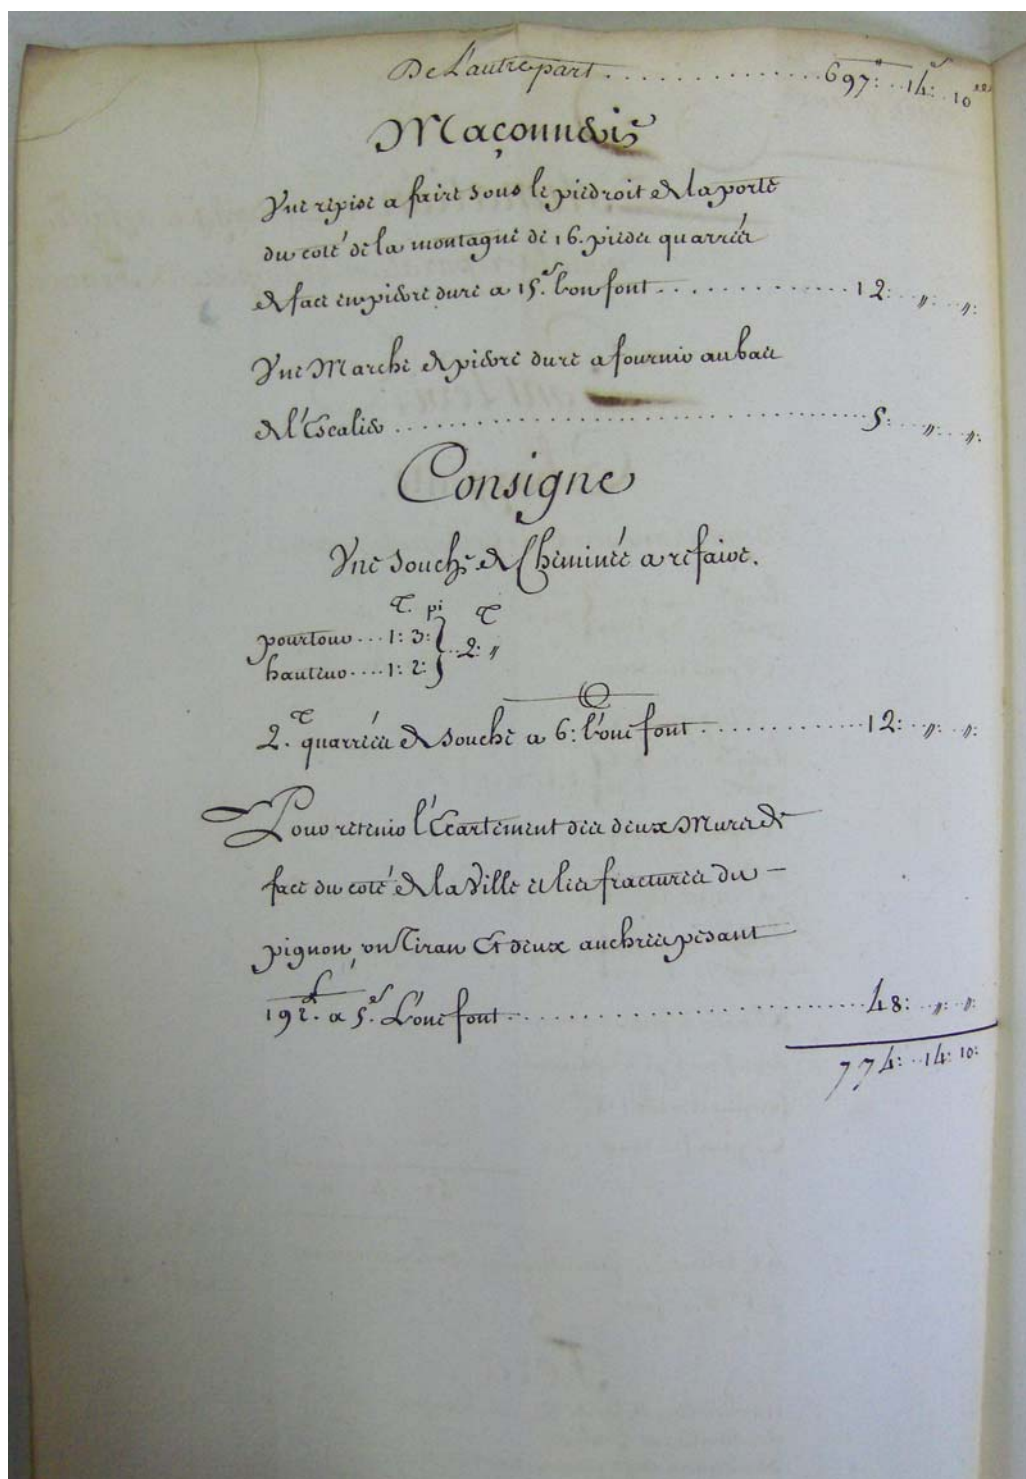 De L'autre part . . . . . . . . . . . . . . 697: . . 14: . . 10
Maçonnerie
Une reprise a faire sous le piedroit de la porte
du coté de la montagne de 16. pieds quarrées
de face en pierre dure a 15.s l'un font . . . . . . . . . . . . 12: . . 〃: . . 〃:
Une Marche de pierre dure a fournir au bas
de l'Escalier . . . . . . . . . . . . . . . . . . . . . . . . 5: . . 〃: . . 〃:
Consigne
Une souche de Cheminée a refaire.
T. pi T
pourtour . . . 1: 3: } . . 2: 〃
hauteur . . . . 1: 2:
2.T quarrées de souche a 6: l'une font . . . . . . . . . . . 12: . . 〃: . . 〃:
Pour retenir l'Ecartement des deux Murs de
face du coté de la Ville et les fractures du –
pignon, un Tiran Et deux anchres pesant
192.£ a 5.s L'une font . . . . . . . . . . . . . . . . . . 48: . . 〃: . . 〃:
774: . . 14: 10: